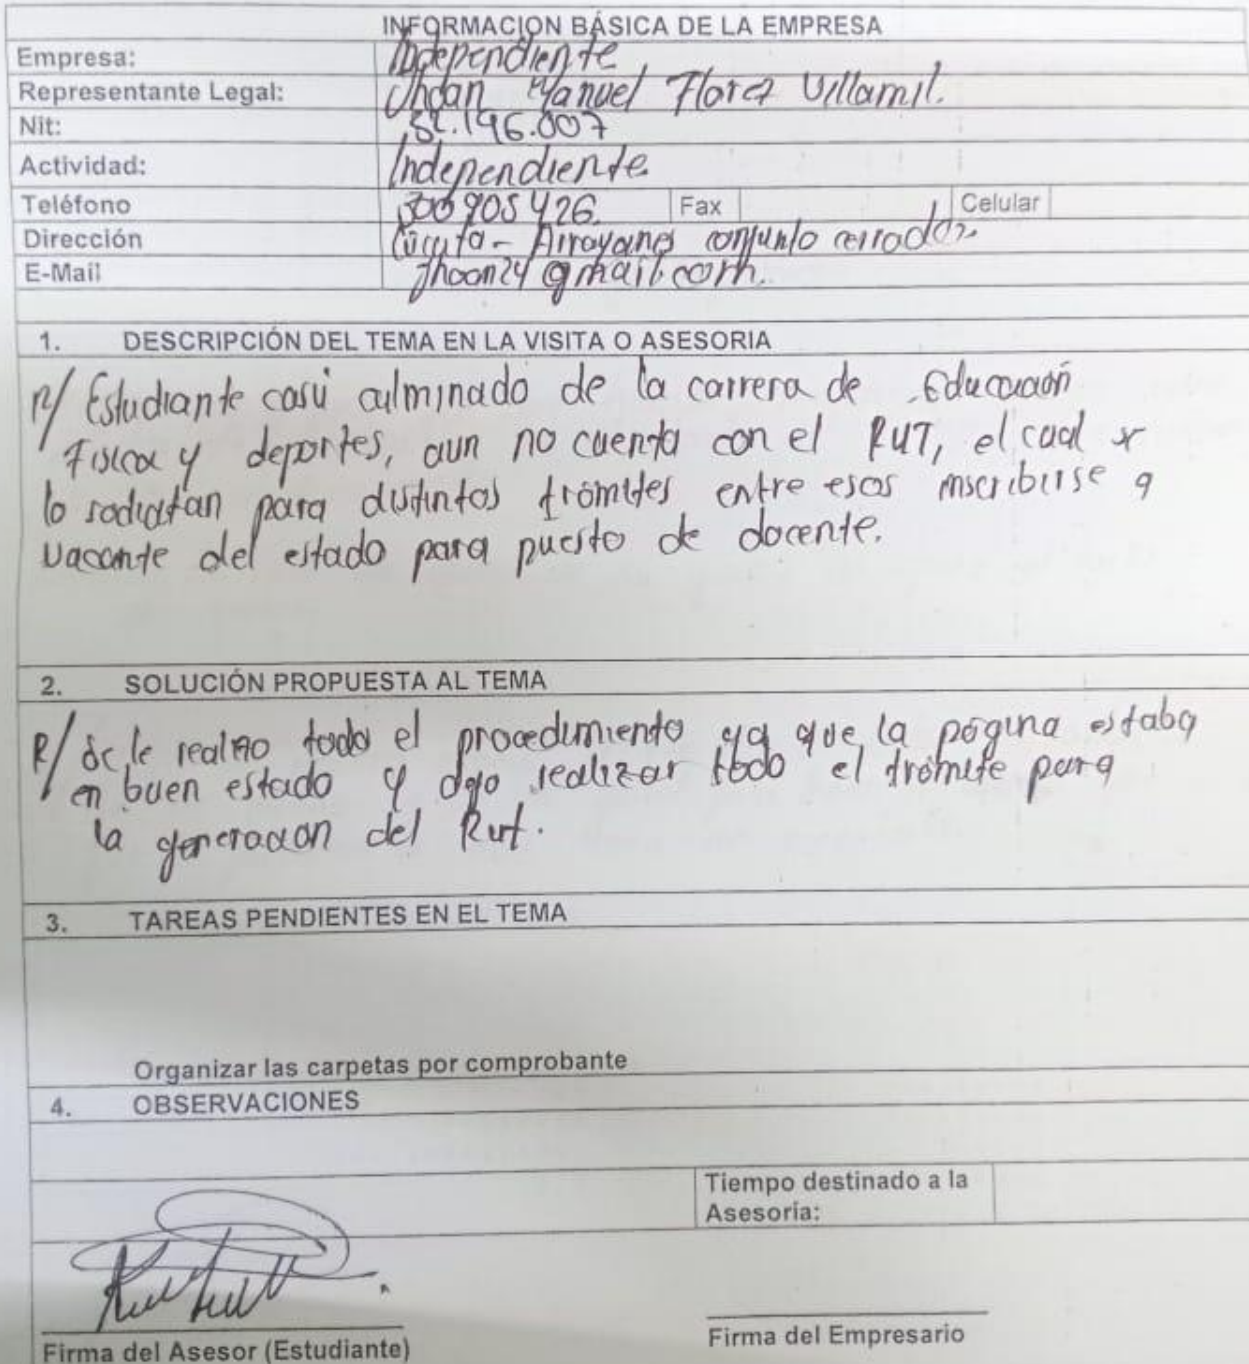 INFORMACION BÁSICA DE LA EMPRESA
Empresa: Independiente
Representante Legal: Jhoan Manuel Florez Villamil.
Nit: 196.007
Actividad: Independiente
Teléfono 300905426. Fax Celular
Dirección Cúcuta - Arrayanes conjunto cerrado
E-Mail Jhoan24 @mail.com.
1. DESCRIPCIÓN DEL TEMA EN LA VISITA O ASESORIA
R/ Estudiante casi culminado de la carrera de Educación
Fisica y deportes, aun no cuenta con el RUT, el cual x
lo solicitan para distintos trámites entre esos inscribirse a
vacante del estado para puesto de docente.
2. SOLUCIÓN PROPUESTA AL TEMA
R/ se le realizo todo el procedimiento ya que la página estaba
en buen estado y dejo realizar todo el trámite para
la generacion del Rut.
3. TAREAS PENDIENTES EN EL TEMA
Organizar las carpetas por comprobante
4. OBSERVACIONES
Tiempo destinado a la
Asesoria:
Firma del Asesor (Estudiante) Firma del Empresario